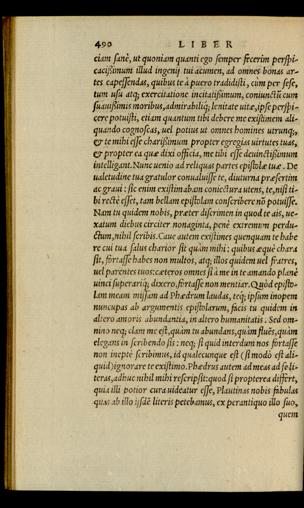 490 LIBER
ciam sanè, ut quoniam quanti ego semper fecerim perspi⸗
cacißimum illud ingenij tui acumen, ad omnes bonas ar⸗
tes capessendas, quibus te à puero tradidisti, cùm per sese,
tum usu atq; exercitatione incitatißimum, coniunctũ cum
suauißimis moribus, admirabiliq; lenitate uitæ, ipse perspi⸗
cere potuisti, etiam quantum tibi debere me existimem ali⸗
quando cognoscas, uel potius ut omnes homines utrunq;
& te mihi esse charißimum propter egregias uirtutes tuas,
& propter ea quæ dixi officia, me tibi esse deuinctißimum
intelligant. Nunc uenio ad reliquas partes epistolæ tuæ. De
ualetudine tua gratulor conualuisse te, diuturna præsertim
ac graui: sic enim existimabam coniectura utens, te, nisi ti⸗
bi rectè esset, tam bellam epistolam conscribere nõ potuisse.
Nam tu quidem nobis, præter discrimen in quod te ais, ue⸗
xatum diebus circiter nonaginta, penè extremum perdu⸗
ctum, nihil scribis. Caue autem existimes quenquam te habe
re cui tua salus charior sit quàm mihi: quibus æquè chara
sit, fortasse habes non multos, atq; illos quidem uel fratres,
uel parentes tuos: cæteros omnes si à me in te amando planè
uinci superariq; dixero, fortasse non mentiar. Quòd episto⸗
lam meam missam ad Phædrum laudas, teq; ipsum inopem
nuncupas ab argumentis epistolarum, facis tu quidem in
altero amoris abundantia, in altero humanitatis. Sed om⸗
nino neq; clam me est, quàm tu abundans, quàm fluẽs, quàm
elegans in scribendo sis: neq; si quid interdum nos fortasse
non ineptè scribimus, id qualecunque est (si modò est ali⸗
quid) ignorare te existimo. Phædrus autem ad meas ad se li⸗
teras, adhuc nihil mihi rescripsit: quod si propterea differt,
quia illi potior cura uideatur esse, Plautinas nobis fabulas
quas ab illo ijsdẽ literis petebamus, ex perantiquo illo suo,
quem